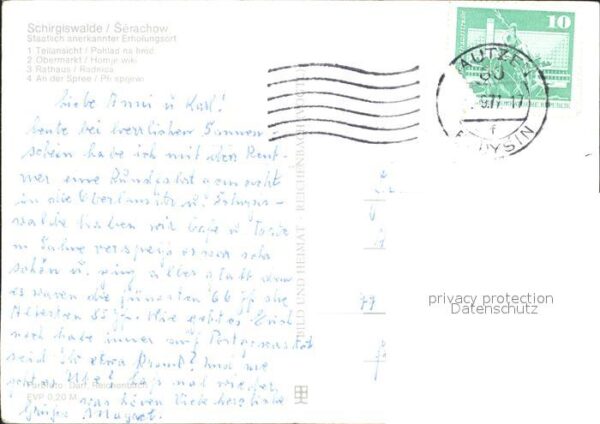 Schirgiswalde / Šěrachow
Staatlich anerkannter Erholungsort
1 Teilansicht / Pohlad na hród
2 Obermarkt / Hornje wiki
3 Rathaus / Radnica
4 An der Spree / Při sprjewi
10
BAUTZEN
BUDYŠIN
Liebe Anni u Karl!
heute bei herrlichem Sonnen
schein habe ich mit den Rent-
ner eine Rundfahrt gemacht
in die Oberlausitz u. Schirgis-
walde haben wir Cafe u Torte
m Sahne verspeist es war sehr
schön u. ging alles glatt denn
es waren die jüngsten 66 J die
Ältesten 85 J. Wie geht es Euch
noch habe immer auf Post gewartet
seid Ihr etwa krank? Und wie
geht es Ute? laßt mal wieder
was hören Viele herzliche
Grüße Margot.
BILD UND HEIMAT REICHENBACH
EVP 0,20 M
privacy protection
Datenschutz